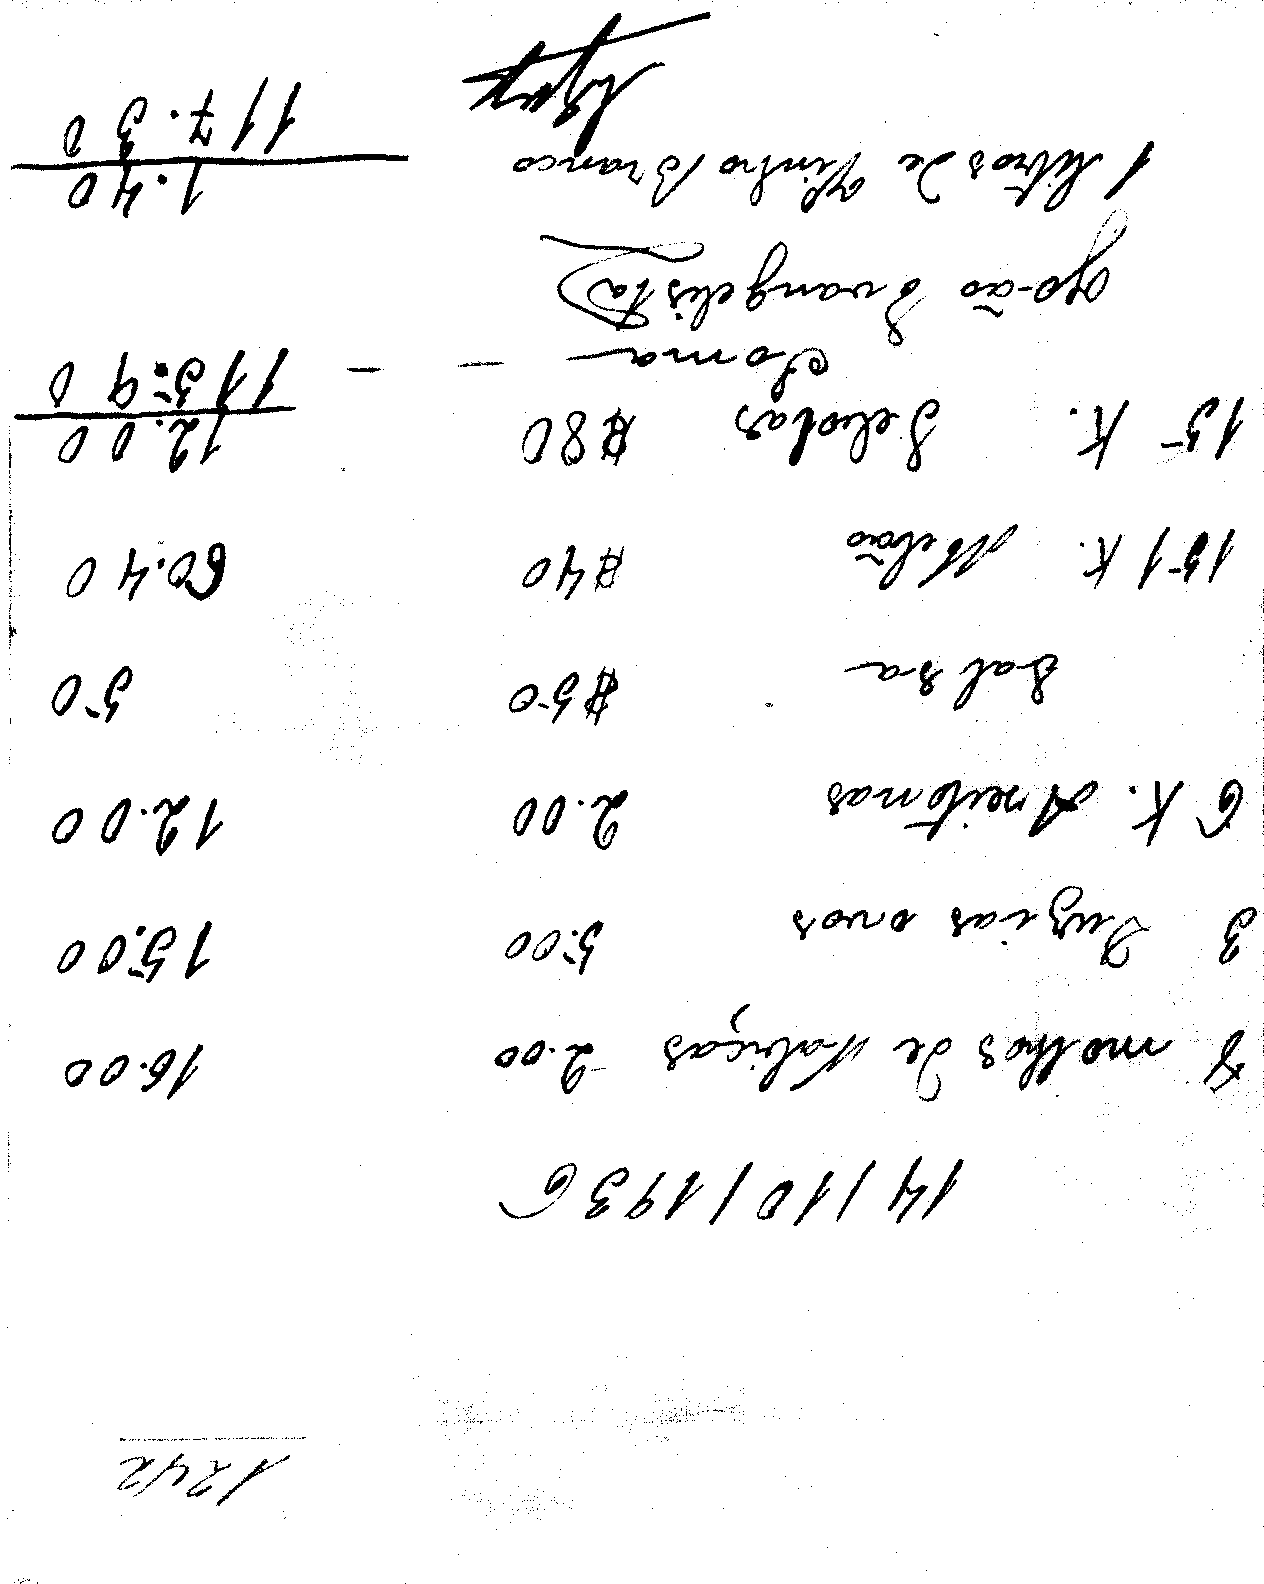 1242
14/10/1936
8 molhos de Nabiças 2.00 16.00
3 Duzias ovos 5.00 15.00
6 K. Aseitonas 2.00 12.00
Salsa $50 50
151 K. Melão $40 60.40
15 K. Sebolas $80 12.00
Soma — — 115.90
João Evangelista
1 litros de Vinho Branco 1.40
117.30